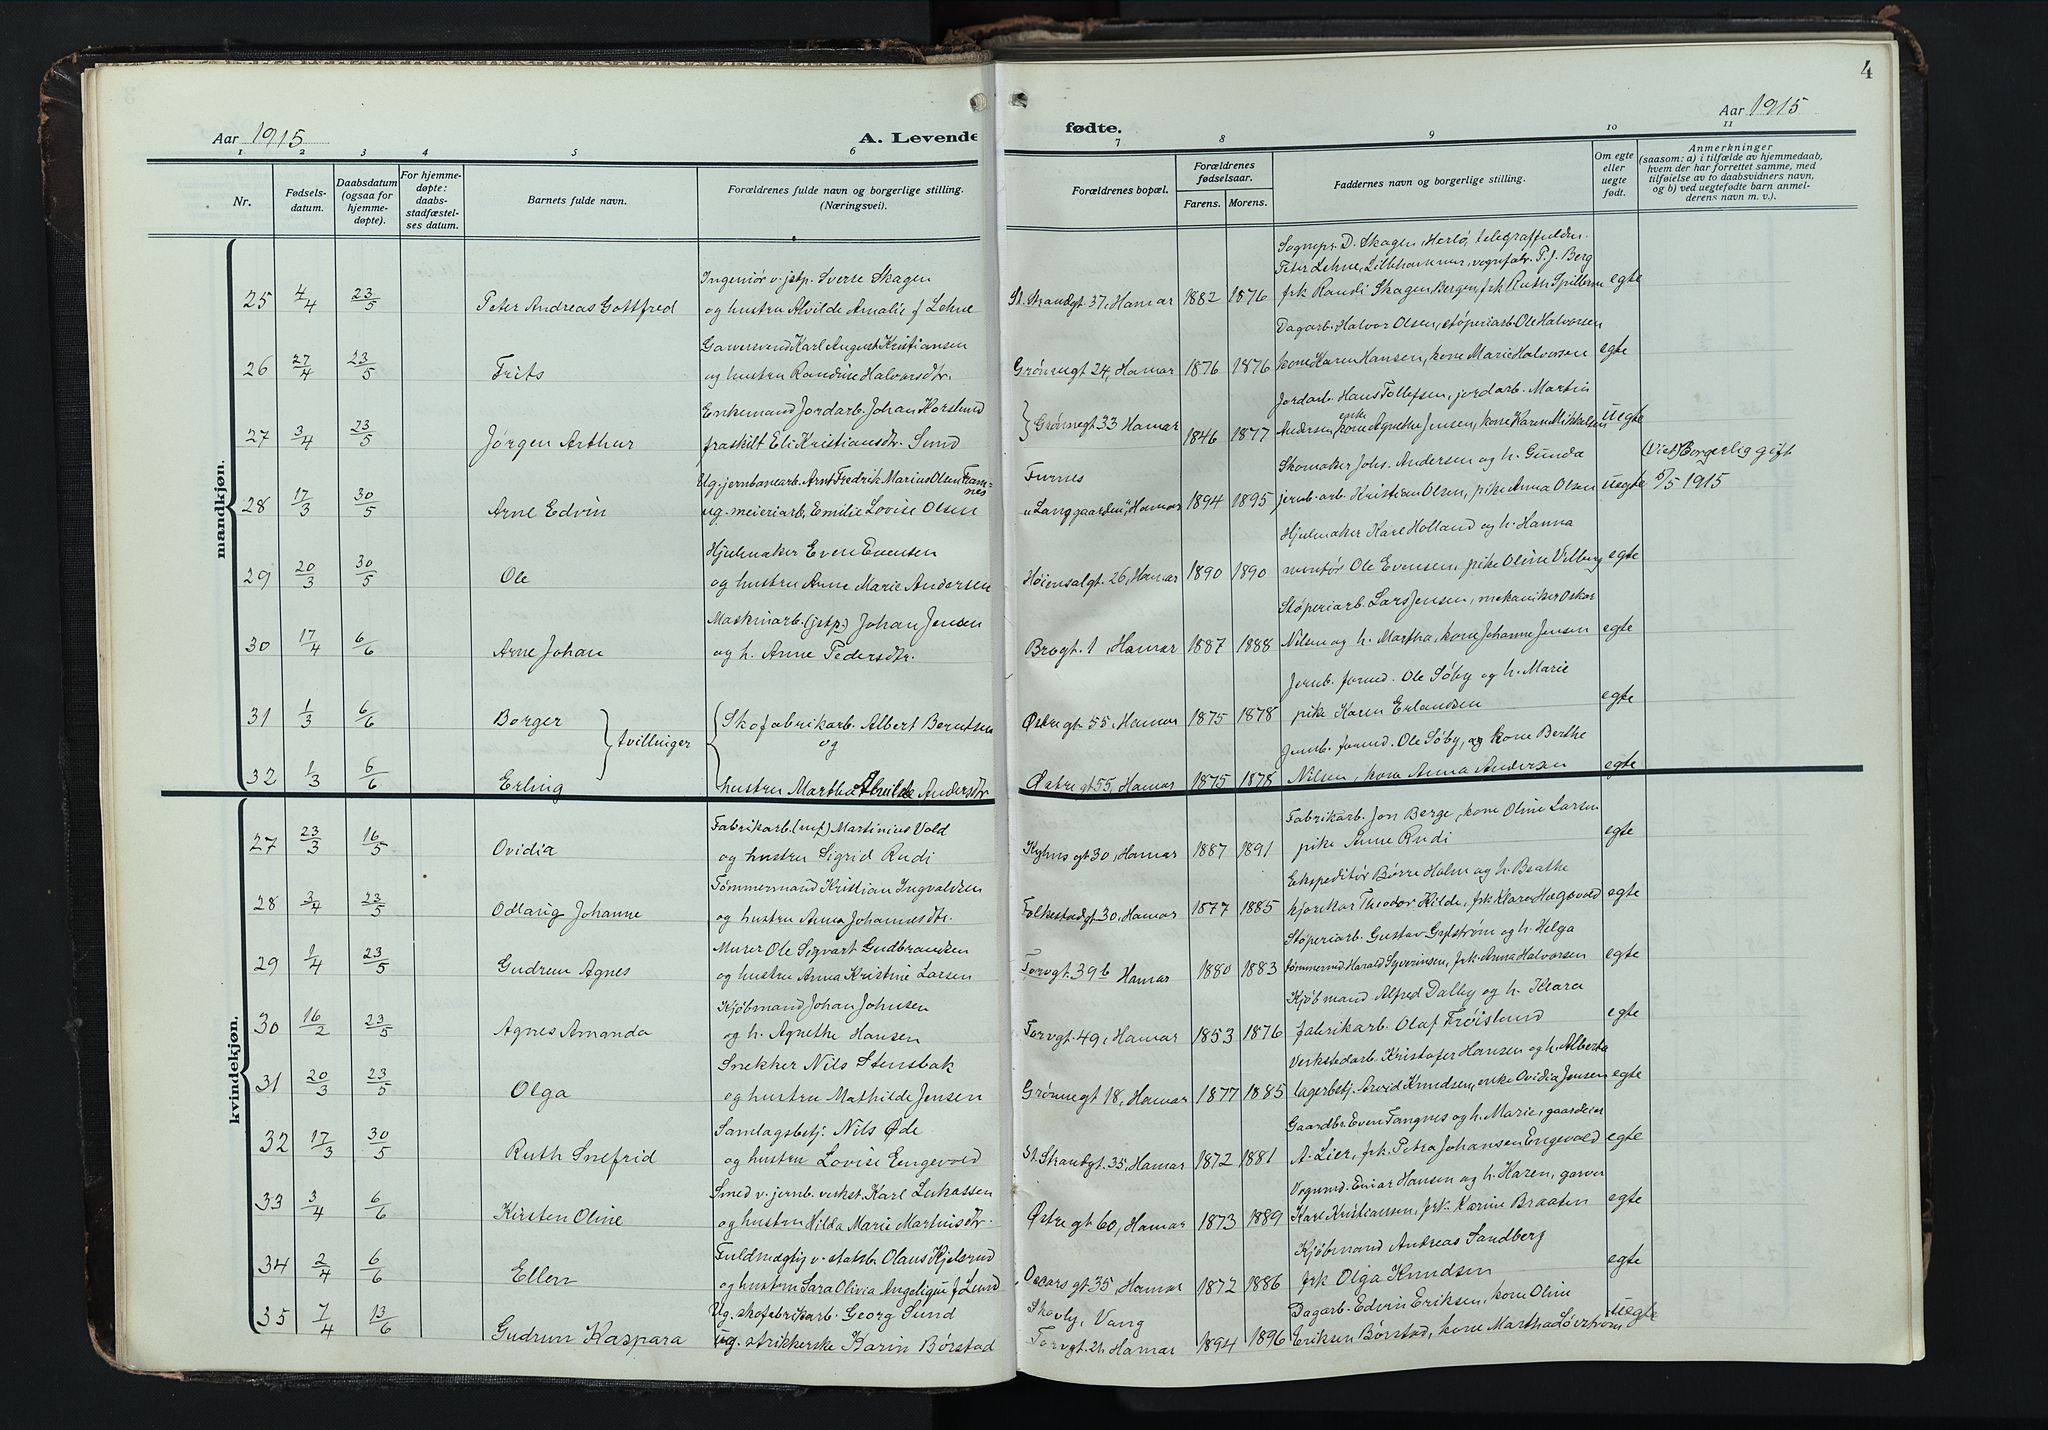 4
Aar 1915
A. Levende fødte.
Aar 1915
1 2 3 4 5 6 7 8 9 10 11
Nr.
Fødsels-
datum.
Daabsdatum
(ogsaa for
hjemme-
døpte).
For hjemme-
døpte:
daabs-
stadfæstel-
ses datum.
Barnets fulde navn.
Forældrenes fulde navn og borgerlige stilling.
(Næringsvei).
Forældrenes bopæl.
Forældrenes
fødselsaar.
Farens. Morens.
Faddernes navn og borgerlige stilling.
Om egte
eller
uegte
født.
Anmerkninger
(saasom: a) i tilfælde av hjemmedaab,
hvem der har forrettet samme, med
tilføielse av to daabsvidners navn,
og b) ved uegtefødte barn anmel-
derens navn m. v.).
mandkjøn.
Sognepr. D. Skagen, Herlø, telegraffuldm.
Ingeniør v. jstp. Sverse Skagen Peter Lehne, Lillehammer, vognfabr. T. J. Berg
25 4/4 23/5 Peter Andreas Gottfred og hustru Alvilde Amalie f. Lehne St. Strandgt. 37, Hamar 1882 1876 frk Randi Skagen Bergen, frk Ruth Spillerne egte
Garversvend Karl August Kristiansen Dagarb. Halvor Olsen, støperiarb. Ole Halvorsen
26 27/4 23/5 Frits og hustru Randine Halvorsdtr. Grønnegt 24, Hamar 1876 1876 kone Karen Hansen, kone Marie Halvorsen egte
Enkemand Jordarb. Johan Korslund Jordarb. Hans Tollefsen, jordarb. Martin
27 3/4 23/5 Jørgen Arthur fraskilt Eli Kristiansdtr. Sund Grønnegt 33 Hamar 1846 1877 Andersen, enke Agnethe Jensen, kone Karen Mikkelsen uegte
Ug. jernbanearb. Arnt Fredrik Marius Olsen Framnes Furnes Skomaker Johs. Andersen og h. Gunda (Viet) Borgerlig gift
28 17/3 30/5 Arne Edvin ug. meieriarb. Emilie Lovise Olsen "Langgaarden", Hamar 1894 1895 jernb. arb. Kristian Olsen, pike Anna Olsen uegte 5/5 1915
Hjulmaker Even Evensen Hjulmaker Karl Holland og h. Hanna
29 20/3 30/5 Ole og hustru Anne Marie Andersen Høiensalgt. 26, Hamar 1890 1890 montør Ole Evensen, pike Oline Vilberg egte
Maskinarb. (jstp.) Johan Jensen Støperiarb. Lars Jensen, mekaniker Oskar
30 17/4 6/6 Arne Johan og h. Anne Pedersdtr. Brogt. 1, Hamar 1887 1888 Nilsen og h. Martha, kone Johanne Jensen egte
Jernb. formd. Ole Søby og h. Marie
31 1/3 6/6 Borger Skofabrikarb. Albert Berntsen Østregt 55, Hamar 1875 1878 pike Karen Erlandsen egte
tvillinger og Jernb. formd. Ole Søby, og kone Berthe
32 1/3 6/6 Erling hustru Martha Alvilde Andersdtr Østregt 55, Hamar 1875 1878 Nilsen, kone Anna Andersen egte
kvindekjøn.
Fabrikarb. (mf) Martinius Vold Fabrikarb. Jon Berge, kone Oline Larsen
27 23/3 16/5 Ovidia og hustru Sigrid Rudi Kyhns gt 30, Hamar 1887 1891 pike Anne Rudi egte
Tømmermand Kristian Ingvaldsen Ekspeditør Børre Holm og h. Beathe
28 3/4 23/5 Odlaug Johanne og hustru Anna Johannesdtr. Folkestadgt 30, Hamar 1877 1885 kjørekar Theodor Kilde, frk Klara Hagevold egte
Murer Ole Sigvart Gudbrandsen Støperiarb. Gustav Gylstrøm og h. Helga
29 1/4 23/5 Gudrun Agnes og hustru Anna Kristine Larsen Torvgt. 39 b Hamar 1880 1883 tømmermd Harald Syverinsen, frk. Anna Halvorsen egte
Kjøbmand Johan Johnsen Kjøbmand Alfred Dalby og h. Klara
30 16/2 23/5 Agnes Amanda og h. Agnethe Hansen Torvgt. 49, Hamar 1853 1876 fabrikarb. Olaf Frøislund egte
Snekker Nils Stensbak Verkstedarb. Kristofer Hansen og h. Alberta
31 20/3 23/5 Olga og hustru Mathilde Jensen Grønnegt 18, Hamar 1877 1885 lagerbetj. Arvid Knudsen, enke Ovidia Jensen egte
Samlagsbetj. Nils Øde Gaardbr. Even Tangnes og h. Marie, gaardeier
32 17/3 30/5 Ruth Snefrid og hustru Lovise Engevold St. Strandgt. 35, Hamar 1872 1881 A. Lier, frk. Petra Johansen Engevold egte
Smed v. jernb. verkst. Karl Lukassen Vognmd. Einar Hansen og h. Karen, garver
33 3/4 6/6 Kirsten Oline og hustru Hilda Marie Martinisdtr. Østregt 60, Hamar 1873 1889 Karl Kristiansen, frk. Karine Braaten egte
Fuldmægtig v. statsb. Olaus Kjelsrud Kjøbmand Andreas Sandberg
34 2/4 6/6 Ellen og hustru Sara Olivia Angelique f. Lund Oscars gt 35, Hamar 1872 1886 frk Olga Knudsen egte
Ug. skofabrikarb. Georg Sund Skovly, Vang Dagarb. Edvin Eriksen, kone Oline
35 7/4 13/6 Gudrun Kaspara ug. strikkerske Karin Børstad Torvgt. 21 Hamar 1894 1896 Eriksen Børstad, kone Martha Løvstrøm uegte